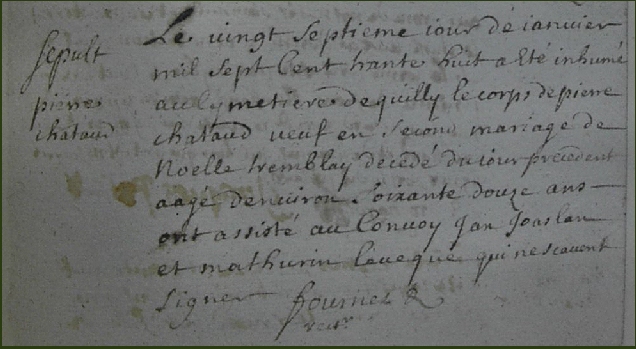 sepult
pierre
chataud
Le vingt septieme iour de ianvier
mil sept Cent trante huit a eté inhumé
au Cymetiere de quilly le corps de pierre
chataud veuf en second mariage de
Noelle tremblay decedé du iour precedent
aagé denuiron soixante douze ans
ont assisté au Convoy Jan Joaslan
et mathurin leveque qui ne scavent
signer fournel
rect.